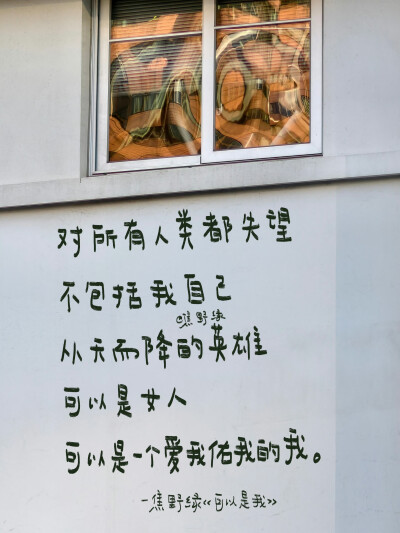 对所有人类都失望
不包括我自己
@焦野绿
从天而降的英雄
可以是女人
可以是一个爱我佑我的我。
—焦野绿《可以是我》